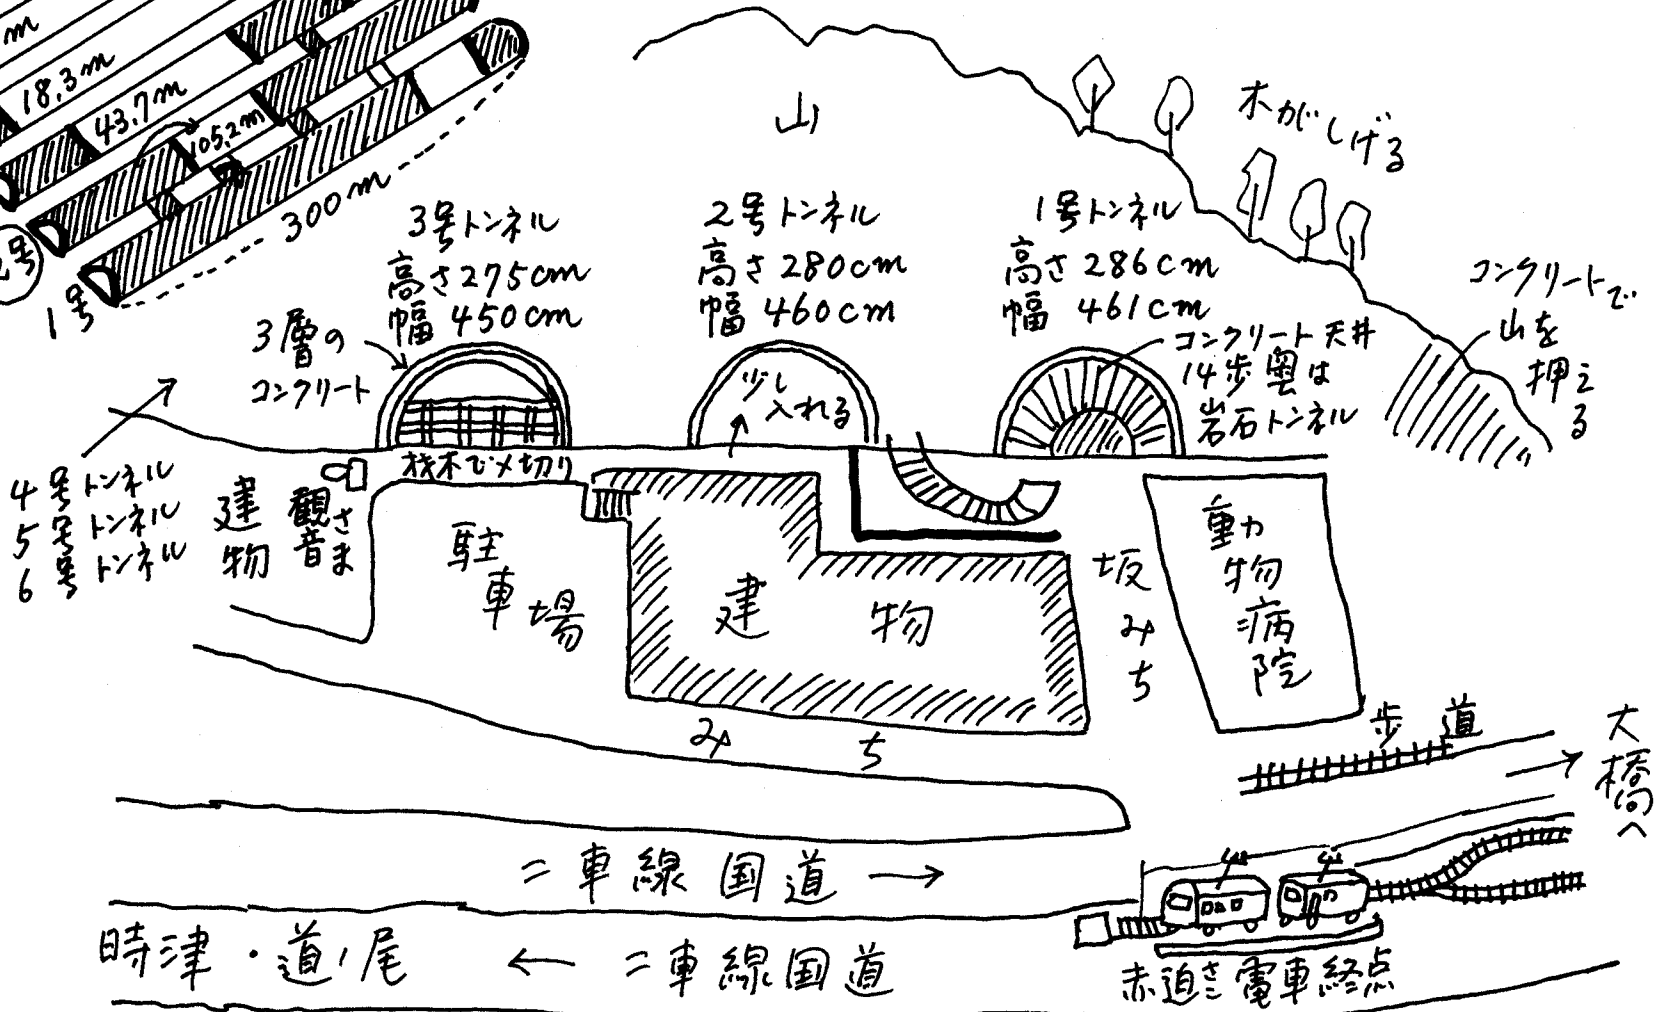 m
18.3m
43.7m
105.2m
300m
2号
1号
山
木がしげる
3号トンネル
高さ275cm
幅 450cm
2号トンネル
高さ280cm
幅 460cm
1号トンネル
高さ286cm
幅 461cm
コンクリートで
山を
押える
3層の
コンクリート
少し
入れる
コンクリート天井
14歩奥は
岩石トンネル
4号トンネル
5号トンネル
6号トンネル
建物
観音さま
材木で〆切り
駐車場
建物
坂みち
動物病院
みち
歩道
大橋へ
二車線国道 →
時津・道ノ尾 ← 二車線国道
赤迫さこ電車終点